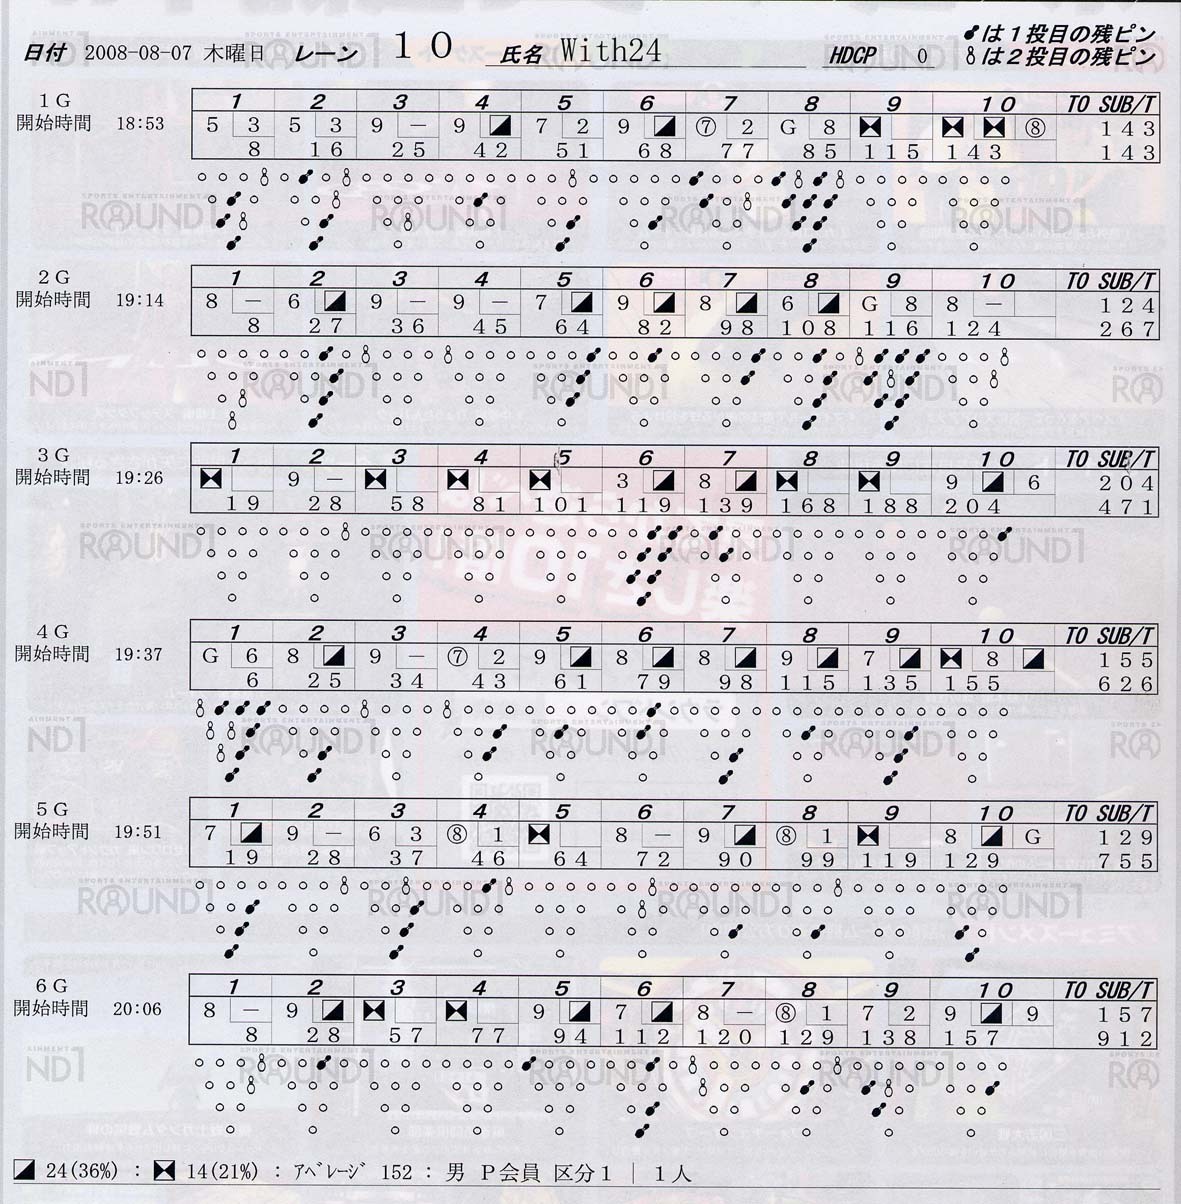 ●は1投目の残ピン
日付 2008-08-07 木曜日 レーン 10 氏名 With24 HDCP 0 ○は2投目の残ピン
1G 1 2 3 4 5 6 7 8 9 10 TO SUB/T
開始時間 18:53 5 3 5 3 9 － 9 ◢ 7 2 9 ◢ ⑦ 2 G 8 ⧓ ⧓ ⧓ ⑧ 143
8 16 25 42 51 68 77 85 115 143 143
ROUND1 ROUND1 ROUND1 ROUND1
2G 1 2 3 4 5 6 7 8 9 10 TO SUB/T
開始時間 19:14 8 － 6 ◢ 9 － 9 － 7 ◢ 9 ◢ 8 ◢ 6 ◢ G 8 8 － 124
8 27 36 45 64 82 98 108 116 124 267
3G 1 2 3 4 5 6 7 8 9 10 TO SUB/T
開始時間 19:26 ⧓ 9 － ⧓ ⧓ ⧓ 3 ◢ 8 ◢ ⧓ ⧓ 9 ◢ 6 204
19 28 58 81 101 119 139 168 188 204 471
ROUND1 ROUND1 ROUND1 ROUND1
4G 1 2 3 4 5 6 7 8 9 10 TO SUB/T
開始時間 19:37 G 6 8 ◢ 9 － ⑦ 2 9 ◢ 8 ◢ 8 ◢ 9 ◢ 7 ◢ ⧓ 8 ◢ 155
6 25 34 43 61 79 98 115 135 155 626
5G 1 2 3 4 5 6 7 8 9 10 TO SUB/T
開始時間 19:51 7 ◢ 9 － 6 3 ⑧ 1 ⧓ 8 － 9 ◢ ⑧ 1 ⧓ 8 ◢ G 129
19 28 37 46 64 72 90 99 119 129 755
ROUND1 ROUND1 ROUND1 ROUND1
6G 1 2 3 4 5 6 7 8 9 10 TO SUB/T
開始時間 20:06 8 － 9 ◢ ⧓ ⧓ 9 ◢ 7 ◢ 8 － ⑧ 1 7 2 9 ◢ 9 157
8 28 57 77 94 112 120 129 138 157 912
◢ 24(36%) : ⧓ 14(21%) : ｱﾍﾞﾚｰｼﾞ 152 : 男 P会員 区分1 | 1人